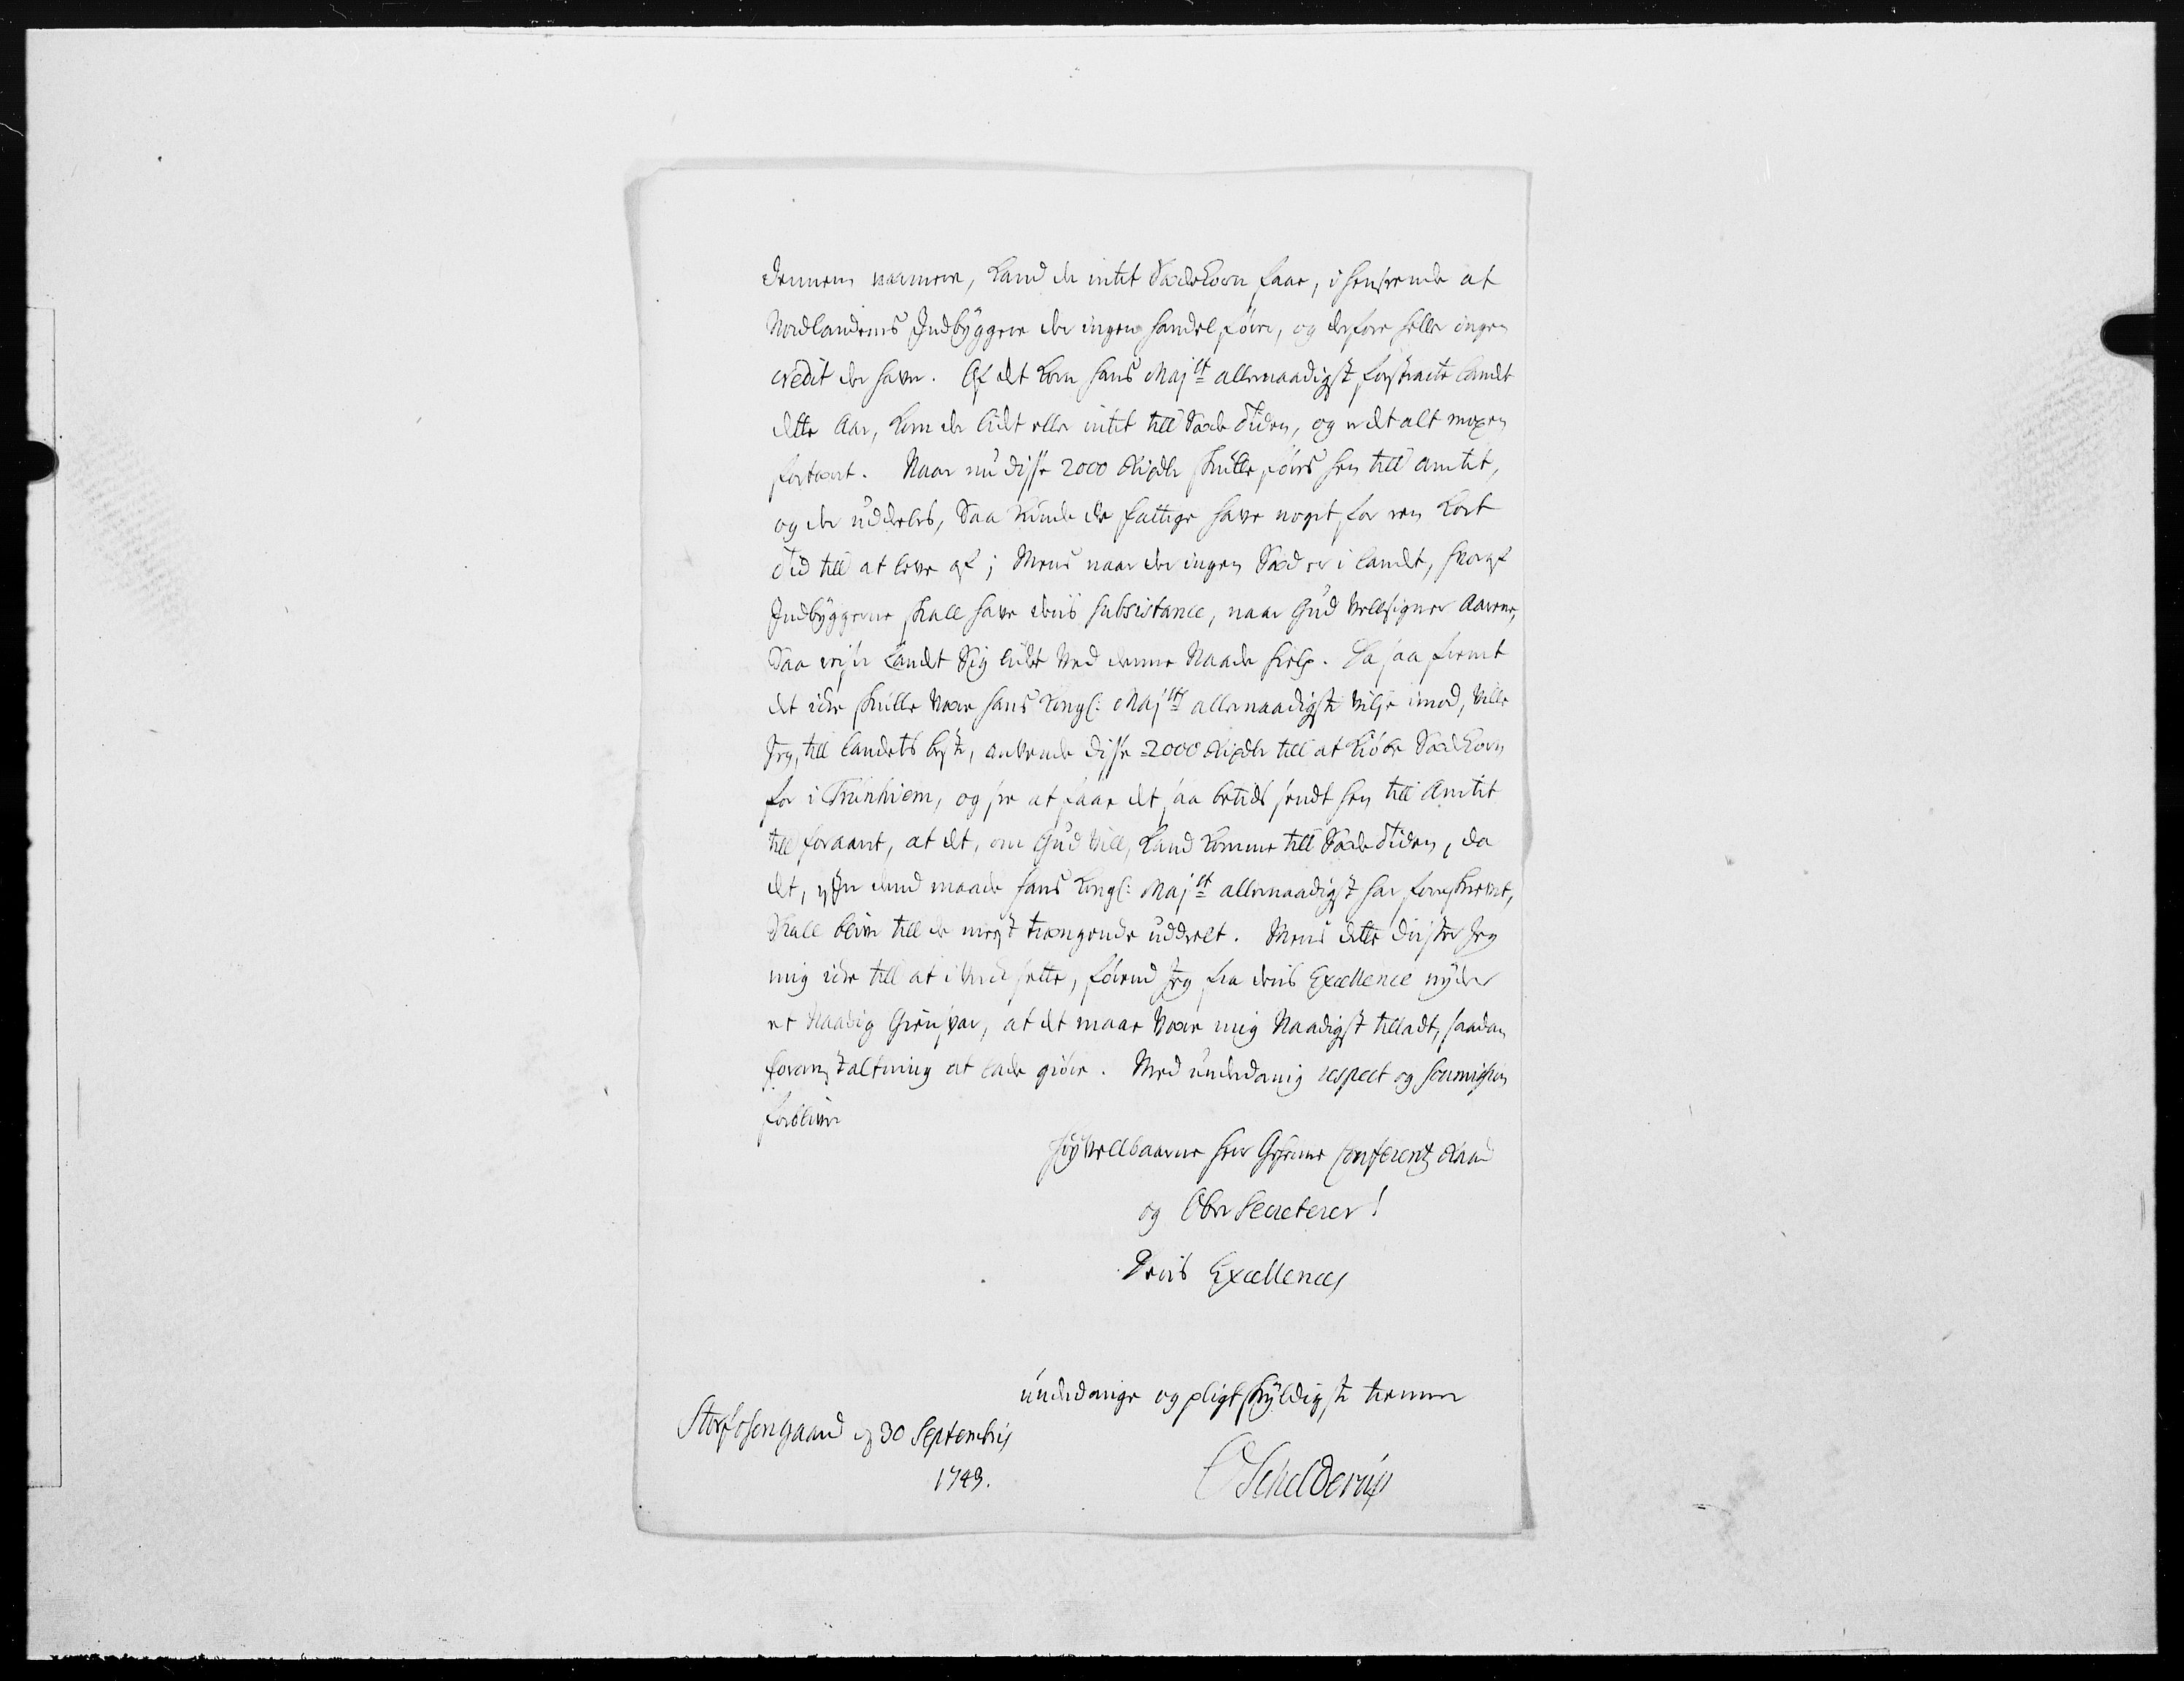 dennem nærmere, kand de intet Sædekorn faae, i henseende at
Nordlandenes Indbyggere der ingen handel före, og derfore heller ingen
credit der have. Af det korn hans Majtt allernaadigst forstracte landet
dette Aar, kom der lidt eller intet till Sæde Tiden, og er det alt mesten
fortært. Naar nu disse 2000 Rixdlr skulle föres hen till amtet,
og der uddeeles, Saa kunde de fattige have noget for een kort
Tid till at leve af; Mens naar der ingen Sæd er i landet, hvoraf
Indbyggerne skall have deris subsistance, naar Gud velsigner Aarene,
Saa reiser landet Sig lidet ved denne Naade hielp. Da saa fremt
det icke skulle være hans kongl: Majtts allernaadigste villie imod, ville
Jeg, till landets beste, anvende disse 2000 Rixdlr till at kiöbe Sædekorn
for i Trünhiem, og see at faae det saa betids sendt hen till Amtet
till foraaret, at det, om Gud vill, kand komme till Sæde Tiden, da
det, efter dend maade hans kongl: Majtt allernaadigst har foreskrevet,
skall blive till de meest trængende uddeelt. Mens dette drister Jeg
mig icke till at i verck sette, förend Jeg fra deris Excellence nyder
et Naadig Giensvar, at det maae være mig Naadigst tilladt, saadan
foranstaltning at lade giöre. Med underdanig respect og soumission
forbliver
höyvellbaarne herr Geheime Conferentz Raad
og Ober Secreterer!
Deris Excellences
underdanige og pligtskyldigste tienner
Storfosengaard d 30 Septembris
1743.
O Schelderüp